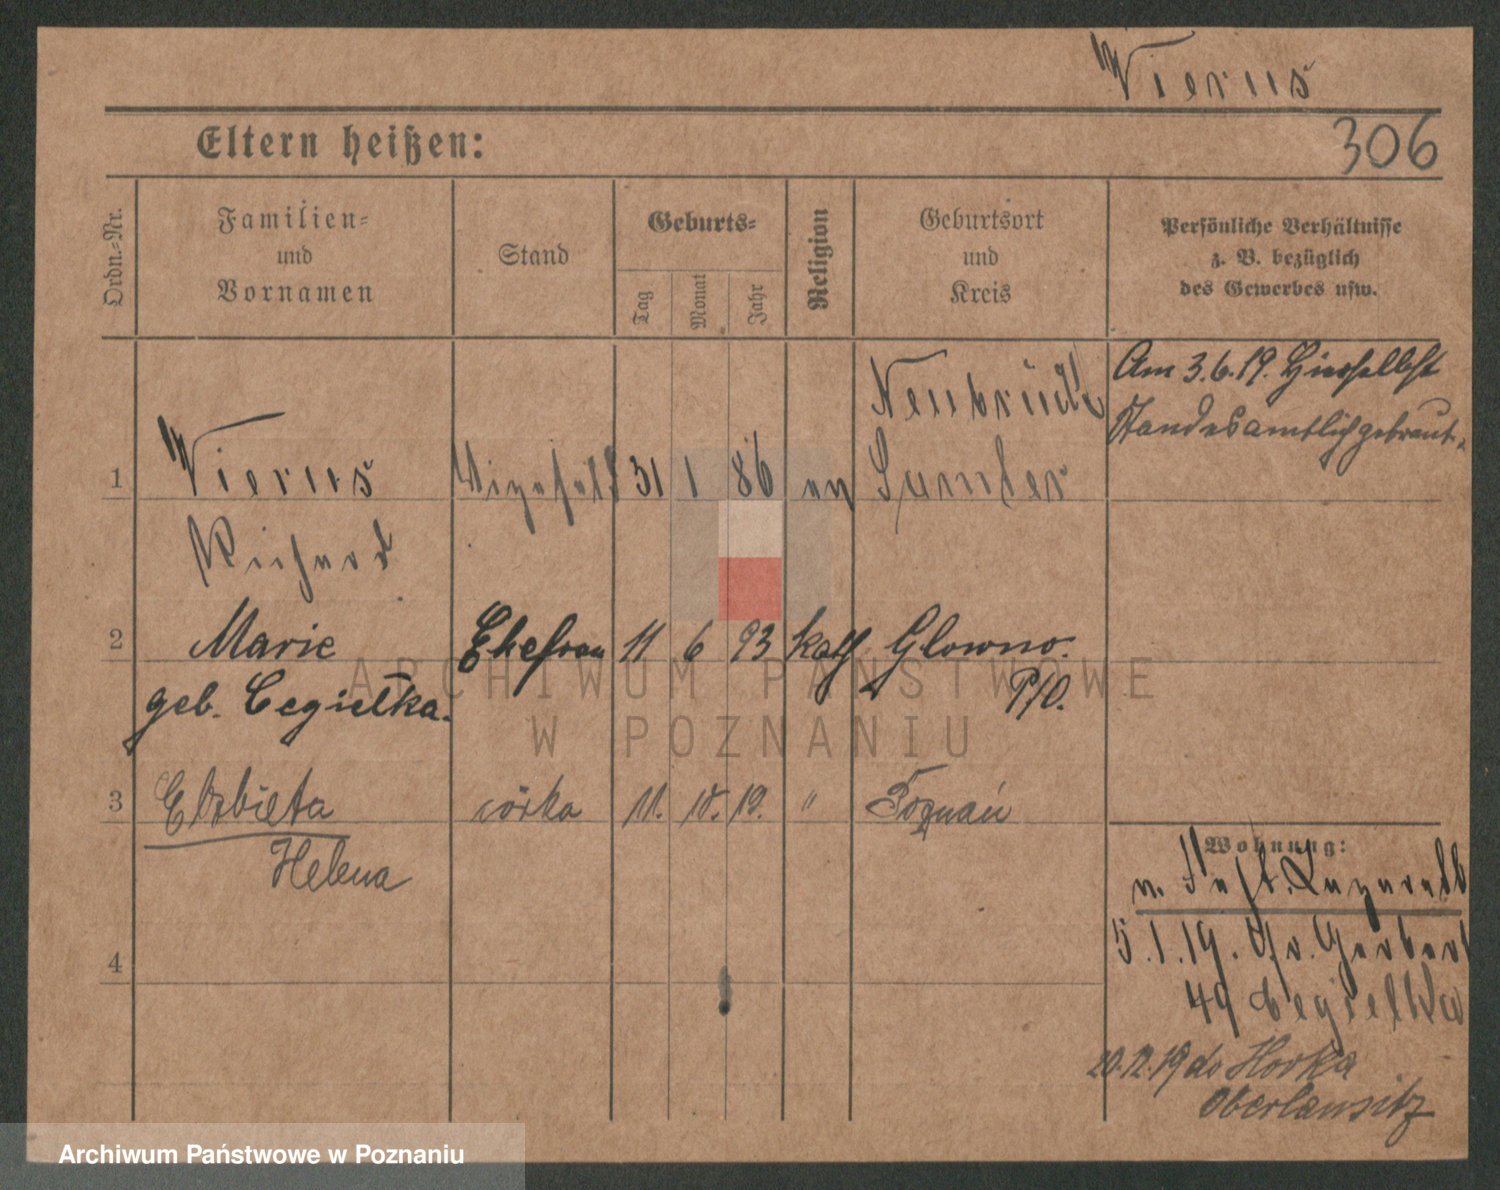 Vierus
306
Eltern heißen:
Ordn.-Nr.
Familien-
und
Vornamen
Stand
Geburts-
Tag
Monat
Jahr
Religion
Geburtsort
und
Kreis
Persönliche Verhältnisse
z. B. bezüglich
des Gewerbes usw.
Am 3.6.19. Hierselbst
Standesamtlich getraut.
1 Vierus Vizefeldw 31 1 86 ev Neubrück
Samter
Richard
2 Marie Ehefrau 11 6 93 kath Glowno.
geb. Cegiełka. P/O.
3 Elżbieta córka 11. 10. 19. " Poznań
Helena
4
Wohnung:
v. Fest. Lazarett
5.1.19. Gr. Gerber
49 Cegielka
20.12.19 do Horka
Oberlausitz
ARCHIWUM PAŃSTWOWE
W POZNANIU
Archiwum Państwowe w Poznaniu